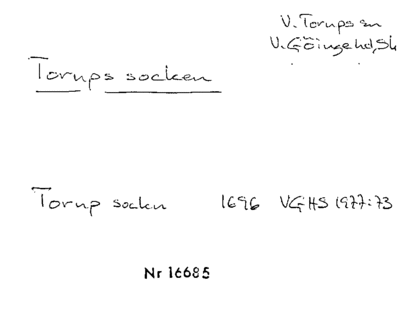 V. Torups sn
V. Göingehd, Sk
Torups socken
Torup socken 1696 VGHS 1977:73
Nr 16685